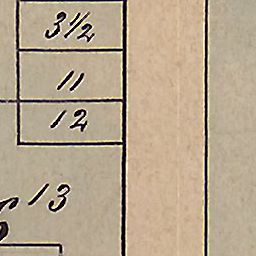 3½
11
12
13